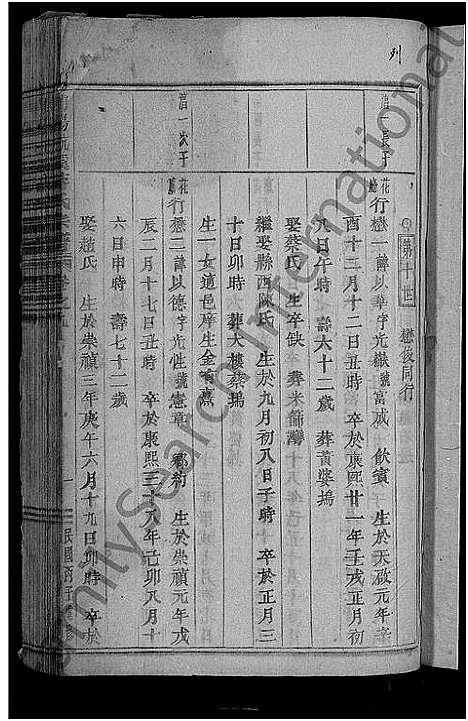 列
第十世 懋後同行
誼一長子
行懋一諱以華字光嶽號富戚 飲賓 生於天啟元年辛
酉十二月十二日丑時 卒於康熙廿一年壬戌正月初
九日午時 壽六十二歲 葬黃婆塢
娶蔡氏 生卒缺 葬米篩灣
繼娶縣西陳氏 生於九月初八日子時 卒於正月三
十日卯時 葬大樓蔡塢
生一女適邑庠生金
誼一次子
行懋二諱以德字光性號憲章 鄉約 生於崇禎元年戊
辰二月十七日丑時 卒於康熙三十八年己卯八月十
六日申時 壽七十二歲
娶趙氏 生於崇禎三年庚午六月十九日卯時 卒於
TrinitySearch International